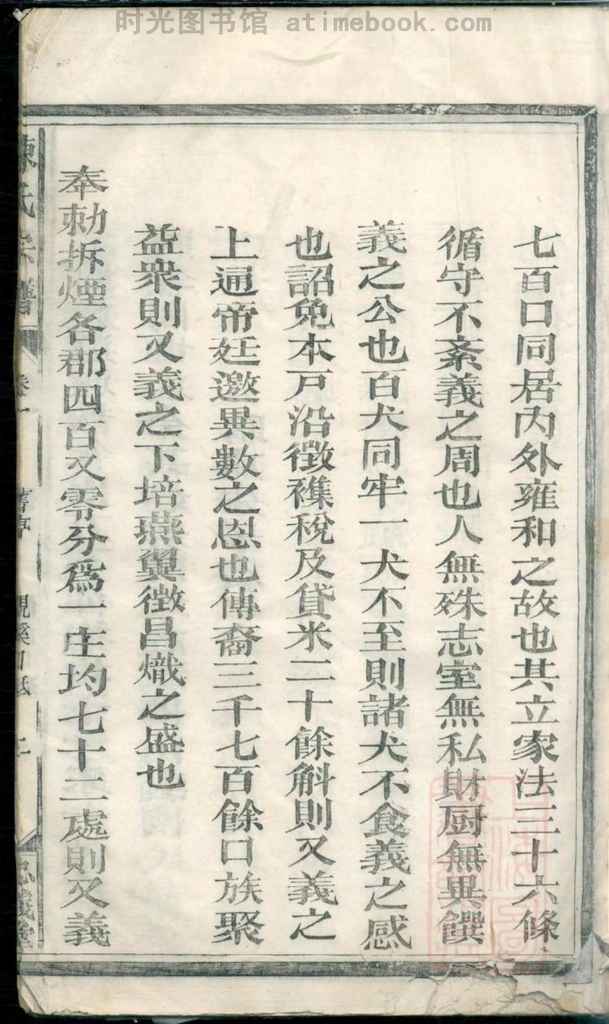 时光图书馆 atimebook.com
七百口同居内外雍和之故也其立家法三十六條
循守不紊義之周也人無殊志室無私財厨無異饌
義之公也百犬同牢一犬不至則諸犬不食義之感
也詔免本戸沿徴襍稅及貸米二十餘斛則又義之
上通帝廷邀異數之恩也傳裔三千七百餘口族聚
益衆則又義之下培燕翼徴昌熾之盛也
奉勅拆煙各郡四百又零分爲一庄均七十二處則又義
陳氏宗譜 卷一 舊序